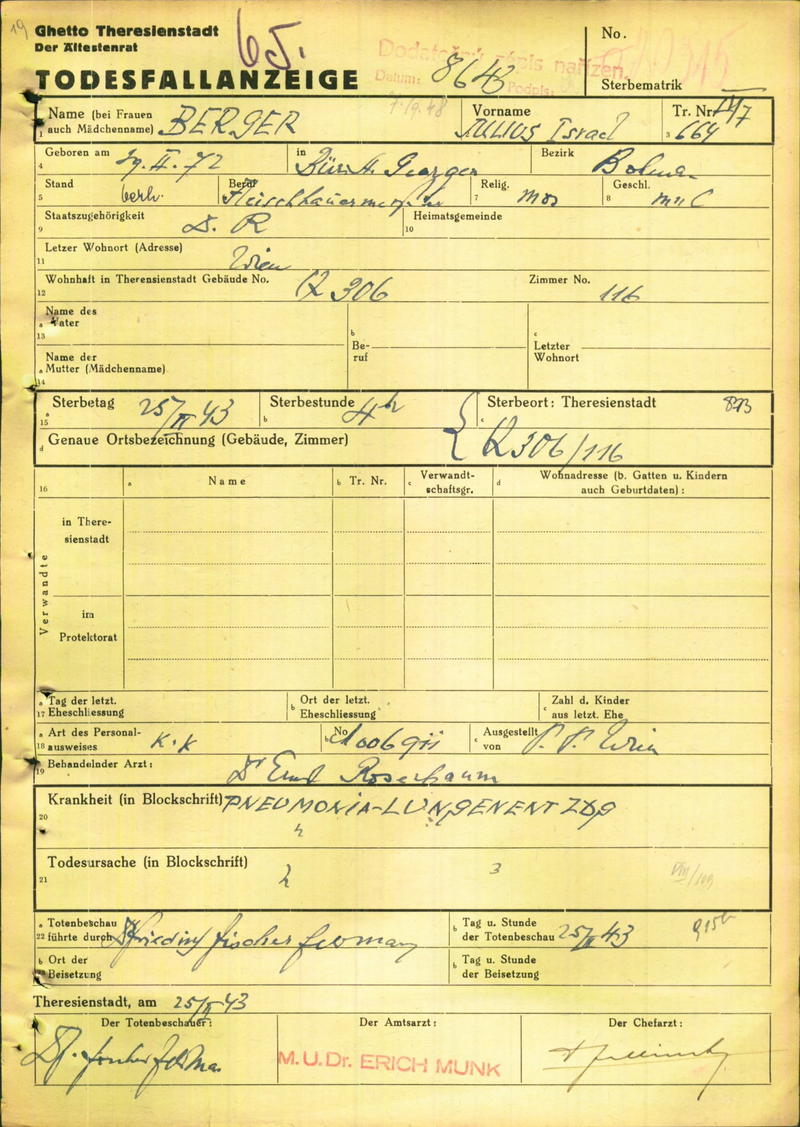 19
Ghetto Theresienstadt
Der Ältestenrat
65.
Dodatečný zápis nařízen
Datum: Podpis:
7./9.48
8643
No.
TODESFALLANZEIGE
Sterbematrik
Name (bei Frauen auch Mädchenname) BERGER
Vorname JULIUS Israel
Tr. Nr. IV/7 664
1
3
Geboren am
in Georgen
Bezirk
4
Stand verh.
Beruf
Relig. mos
Geschl.
5
7
8
Staatszugehörigkeit D. R
Heimatsgemeinde
9
10
Letzer Wohnort (Adresse) Wien
11
Wohnhaft in Theresienstadt Gebäude No. Q 306
Zimmer No. 116
12
Name des
a Vater
13
b
Be-
ruf
c
Letzter
Wohnort
Name der
a Mutter (Mädchenname)
14
a Sterbetag 25/II 43
b Sterbestunde 4h
c Sterbeort: Theresienstadt
15
d Genaue Ortsbezeichnung (Gebäude, Zimmer) Q 306/116
16
a Name
b Tr. Nr.
c Verwandt-
schaftsgr.
d Wohnadresse (b. Gatten u. Kindern
auch Geburtdaten) :
Verwandte
in There-
sienstadt
im
Protektorat
a Tag der letzt.
17 Eheschliessung
b Ort der letzt.
Eheschliessung
c Zahl d. Kinder
aus letzt. Ehe
a Art des Personal-
18 ausweises K.K
b No
c Ausgestellt
von P. P. Wien
19 Behandelnder Arzt: Dr Rosenbaum
Krankheit (in Blockschrift) PNEUMONIA-LUNGENENTZDG
20
Todesursache (in Blockschrift)
21
3
VIII/109
a Totenbeschau
22 führte durch Fischer
b Tag u. Stunde
der Totenbeschau 25/II 43
b Ort der
Beisetzung
b Tag u. Stunde
der Beisetzung
Theresienstadt, am 25/II 43
Der Totenbeschauer:
Der Amtsarzt:
Der Chefarzt:
M.U.Dr. ERICH MUNK